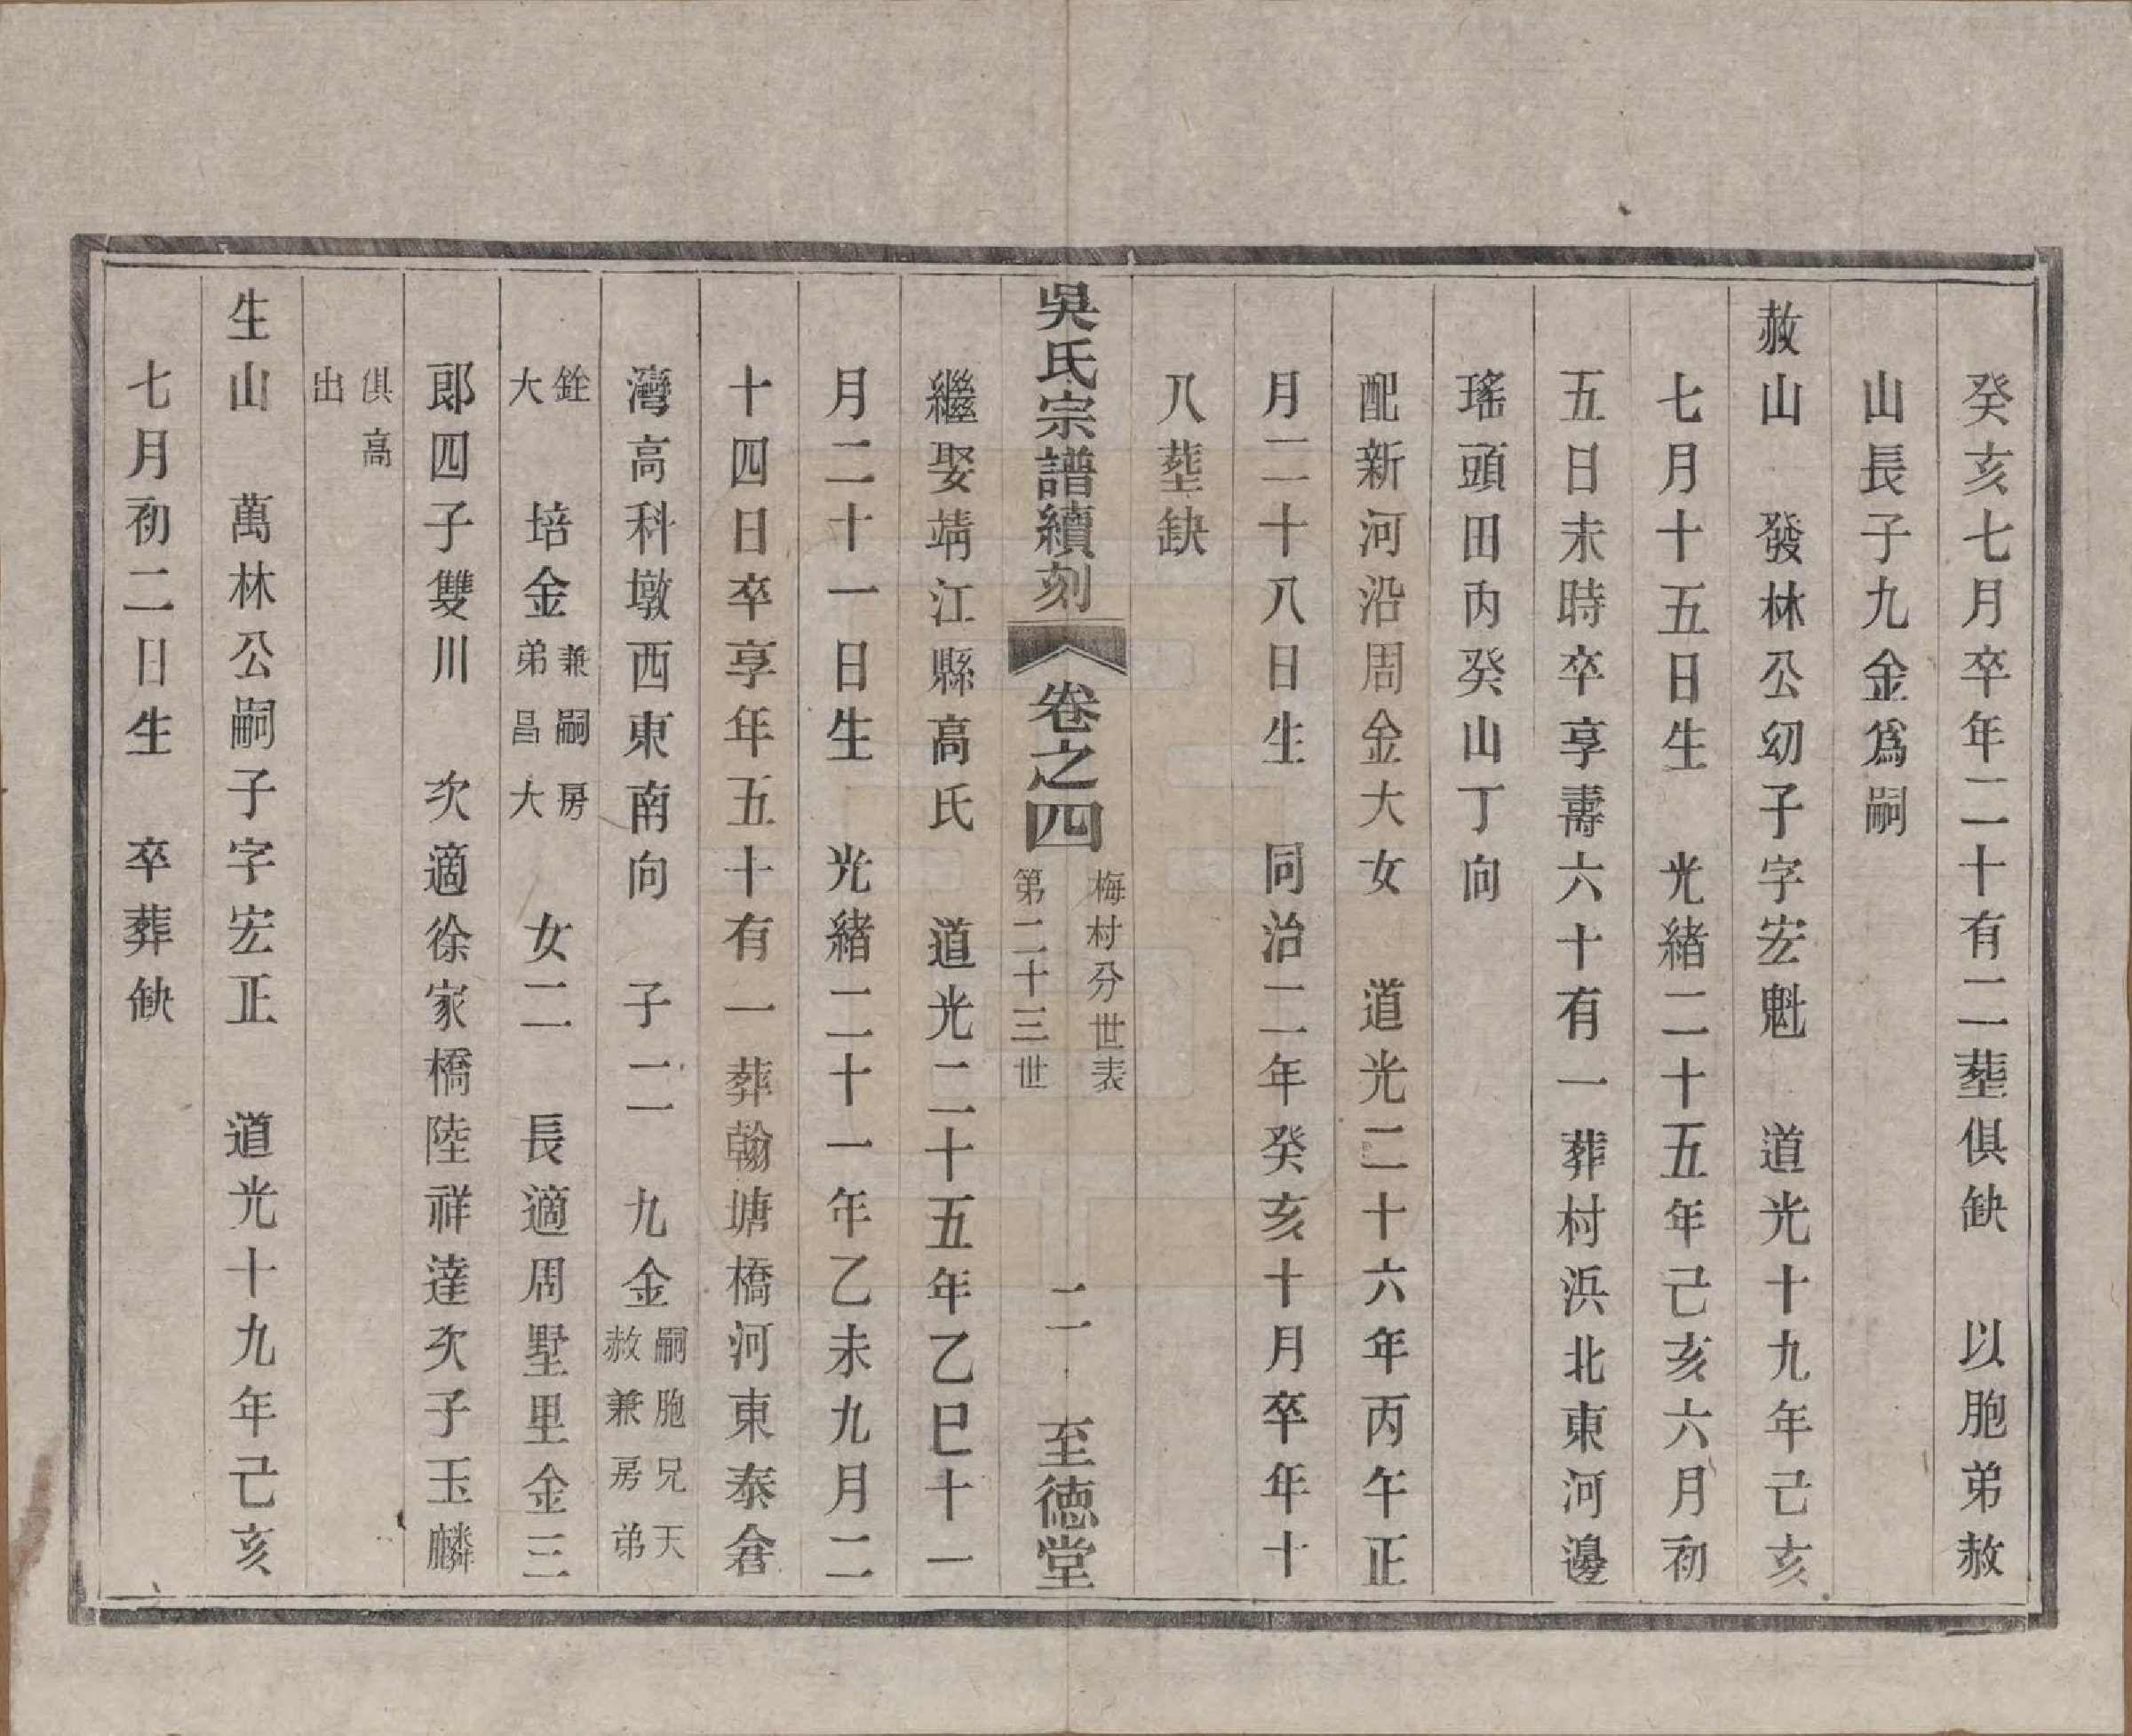 癸亥七月卒年二十有二塟俱缺　以胞弟赦
山長子九金爲嗣
赦山　發林公幼子字宏魁　道光十九年己亥
七月十五日生　光緒二十五年己亥六月初
五日未時卒享壽六十有一葬村浜北東河邊
瑤頭田丙癸山丁向
配新河沿周金大女　道光二十六年丙午正
月二十八日生　同治二年癸亥十月卒年十
八塟缺
吳氏宗譜續刻　卷之四　梅村分世表
第二十三世　二　至德堂
繼娶靖江縣高氏　道光二十五年乙巳十一
月二十一日生　光緒二十一年乙未九月二
十四日卒享年五十有一葬翰塘橋河東泰倉
灣高科墩西東南向　子二　九金嗣胞兄天
赦兼房弟
銓
大　培金兼嗣房
弟昌大　女二　長適周墅里金三
郎四子雙川　次適徐家橋陸祥達次子玉麟
俱高
出
生山　萬林公嗣子字宏正　道光十九年己亥
七月初二日生　卒葬缺